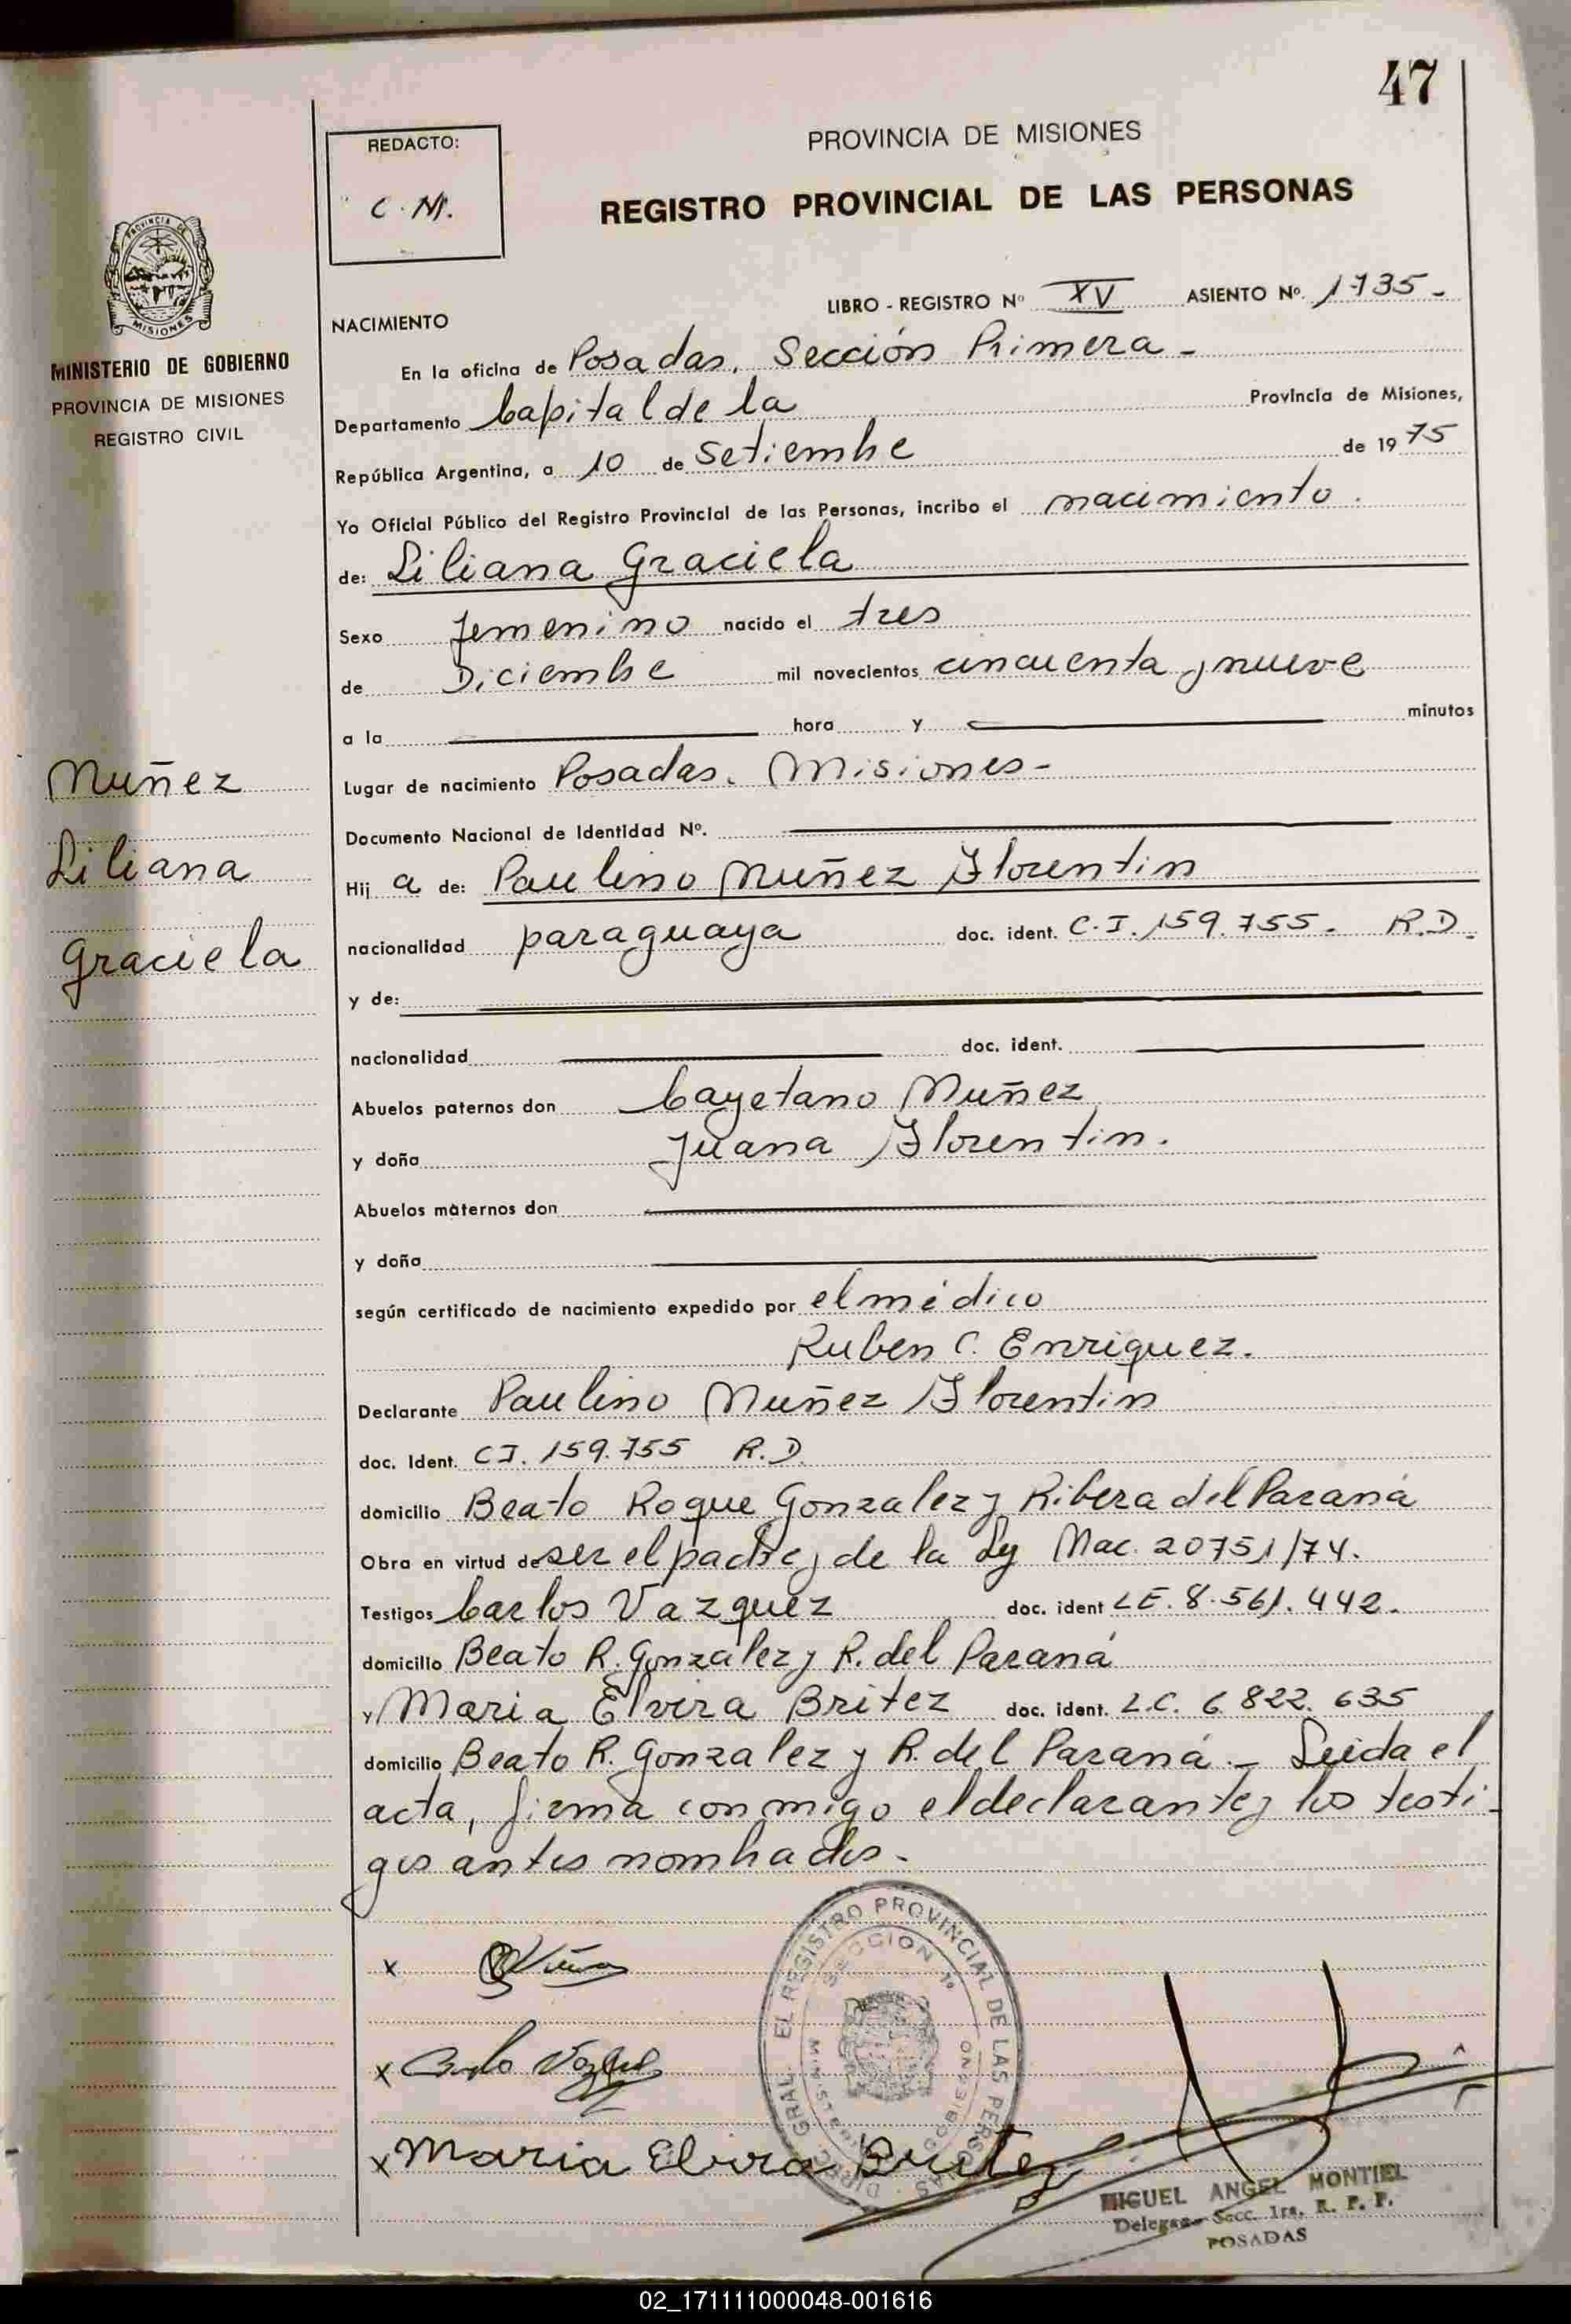 47
REDACTO:
C. M.
PROVINCIA DE MISIONES
REGISTRO PROVINCIAL DE LAS PERSONAS
PROVINCIA DE
MISIONES
MINISTERIO DE GOBIERNO
PROVINCIA DE MISIONES
REGISTRO CIVIL
LIBRO - REGISTRO Nº XV ASIENTO Nº. 1735 -
NACIMIENTO
En la oficina de Posadas, Sección Primera -
Departamento Capital de la Provincia de Misiones,
República Argentina, a 10 de Setiembre de 1975
Yo Oficial Público del Registro Provincial de las Personas, incribo el nacimiento.
de: Liliana Graciela
Sexo femenino nacido el tres
de Diciembre mil novecientos cincuenta y nueve
a la hora y minutos
Lugar de nacimiento Posadas. Misiones-
Documento Nacional de Identidad Nº.
Nuñez
Liliana
Graciela
Hij a de: Paulino Nuñez Florentin
nacionalidad paraguaya doc. ident. C.I. 159.755. R.D.
y de:
nacionalidad doc. ident.
Abuelos paternos don Cayetano Nuñez
y doña Juana Florentin.
Abuelos maternos don
y doña
según certificado de nacimiento expedido por el médico
Ruben C. Enriquez.
Declarante Paulino Nuñez Florentin
doc. Ident. CI. 159.755 R.D.
domicilio Beato Roque Gonzalez y Ribera del Paraná
Obra en virtud de ser el padre y de la Ley Nac. 20751/74.
Testigos Carlos Vazquez doc. ident LE. 8.561.442.
domicilio Beato R. Gonzalez y R. del Paraná
y Maria Elvira Britez doc. ident. L.C. 6.822.635
domicilio Beato R. Gonzalez y R. del Paraná. - Leida el
acta, firma conmigo el declarante y los testi-
gos antes nombrados.
x
x Carlo Vazquez
x Maria Elvira Britez
DIREC. GRAL. EL REGISTRO PROVINCIAL DE LAS PERSONAS
SECCION 1ª
MINISTERIO GOBIERNO
MIGUEL ANGEL MONTIEL
Delegado Secc. 1ra. R. P. P.
POSADAS
02_171111000048-001616